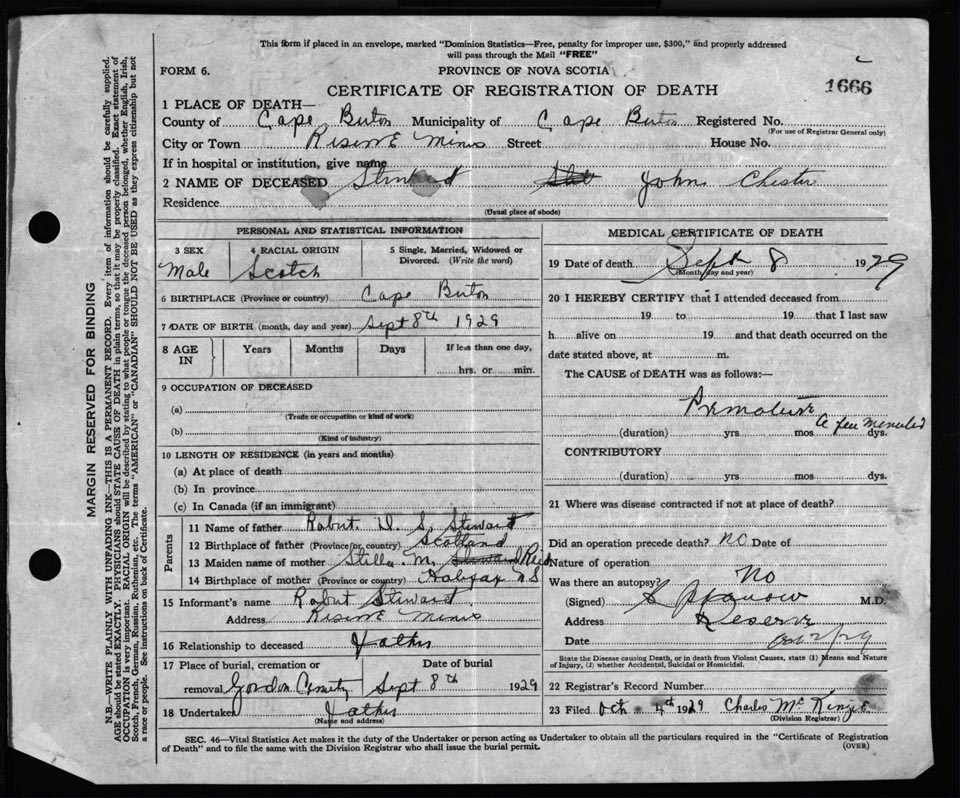 This form if placed in an envelope, marked "Dominion Statistics—Free, penalty for improper use, $300," and properly addressed
will pass through the Mail "FREE"
FORM 6.
PROVINCE OF NOVA SCOTIA
1666
CERTIFICATE OF REGISTRATION OF DEATH
1 PLACE OF DEATH—
County of Cape Breton Municipality of Cape Breton Registered No.
(For use of Registrar General only)
City or Town Reserve Mines Street House No.
If in hospital or institution, give name
2 NAME OF DECEASED Steward John Chester
Residence
(Usual place of abode)
PERSONAL AND STATISTICAL INFORMATION
3 SEX 4 RACIAL ORIGIN 5 Single, Married, Widowed or
Divorced. (Write the word)
Male Scotch
6 BIRTHPLACE (Province or country) Cape Breton
7 DATE OF BIRTH (month, day and year) Sept 8th 1929
8 AGE IN Years Months Days If less than one day,
hrs. or min.
9 OCCUPATION OF DECEASED
(a)
(Trade or occupation or kind of work)
(b)
(Kind of industry)
10 LENGTH OF RESIDENCE (in years and months)
(a) At place of death
(b) In province
(c) In Canada (if an immigrant)
Parents
11 Name of father Robert D. S. Steward
12 Birthplace of father (Province or country) Scotland
13 Maiden name of mother Stella M. Steward Reid
14 Birthplace of mother (Province or country) Halifax N S
15 Informant's name Robert Steward
Address Reserve Mines
16 Relationship to deceased Father
17 Place of burial, cremation or Date of burial
removal Gordon Cemetery Sept 8th 1929
18 Undertaker Father
(Name and address)
MEDICAL CERTIFICATE OF DEATH
19 Date of death Sept 8 1929
(Month, day and year)
20 I HEREBY CERTIFY that I attended deceased from
19 to 19 that I last saw
h alive on 19 and that death occurred on the
date stated above, at m.
The CAUSE of DEATH was as follows:—
Premature
A few minutes
(duration) yrs mos dys.
CONTRIBUTORY
(duration) yrs mos dys.
21 Where was disease contracted if not at place of death?
Did an operation precede death? NO Date of
Nature of operation
Was there an autopsy? No
(Signed) M.D.
Address Reserve
Date Oct 2/29
State the Disease causing Death, or in death from Violent Causes, state (1) Means and Nature
of Injury, (2) whether Accidental, Suicidal or Homicidal.
22 Registrar's Record Number
23 Filed Oct 4th 1929 Charles McKenzie
(Division Registrar)
SEC. 46—Vital Statistics Act makes it the duty of the Undertaker or person acting as Undertaker to obtain all the particulars required in the "Certificate of Registration
of Death" and to file the same with the Division Registrar who shall issue the burial permit.
(OVER)
MARGIN RESERVED FOR BINDING
N.B.—WRITE PLAINLY WITH UNFADING INK—THIS IS A PERMANENT RECORD. Every item of information should be carefully supplied.
AGE should be stated EXACTLY. PHYSICIANS should STATE CAUSE OF DEATH in plain terms, so that it may be properly classified. Exact statement of
OCCUPATION is very important. RACIAL ORIGIN will be described by stating to what people or tongue the deceased person belonged, whether English, Irish,
Scotch, French, German, Russian, Ruthenian, etc. The terms "AMERICAN" or "CANADIAN" SHOULD NOT BE USED as they express citizenship but not
a race or people. See instructions on back of Certificate.